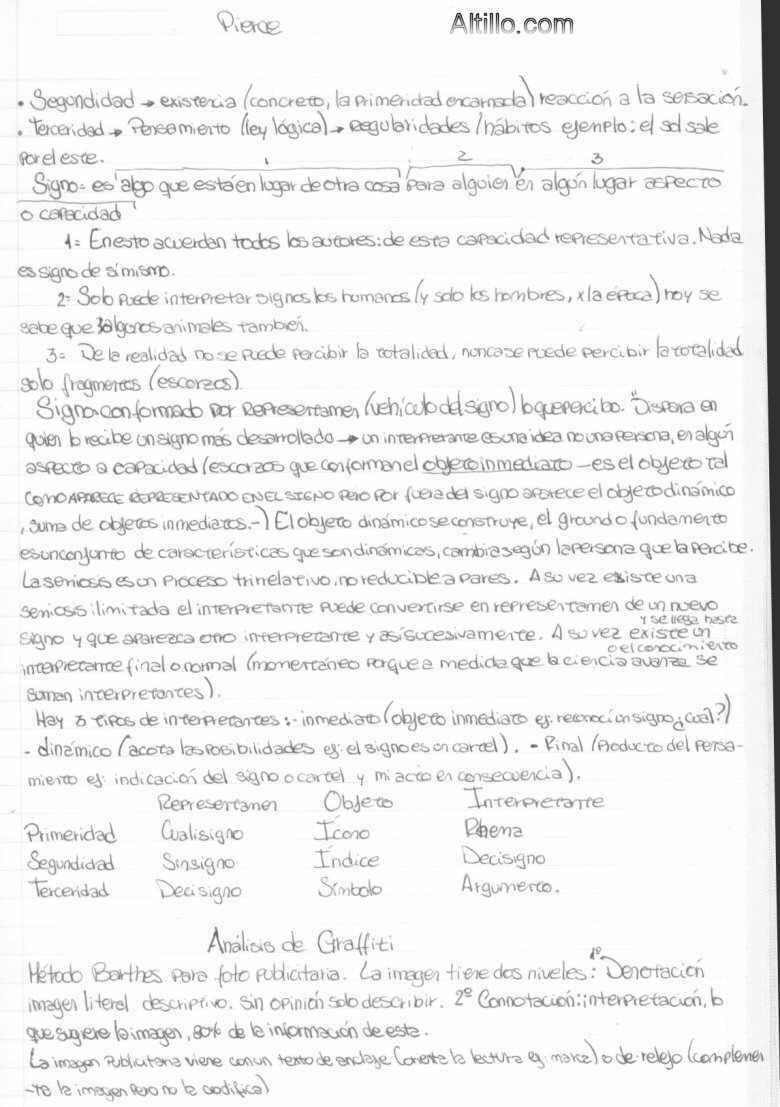 Pierce
Altillo.com
• Segondidad → existencia (concreto, la primeridad encarnada) reacción a la sensación.
• Terceridad → Pensamiento (ley lógica) → Regularidades / hábitos ejemplo: el sol sale
por el este.
1 2 3
Signo = es algo que está en lugar de otra cosa para alguien en algún lugar aspecto
o capacidad
1= En esto acuerdan todos los autores: de esta capacidad representativa. Nada
es signo de sí mismo.
2= Solo puede interpretar signos los humanos (y solo los hombres, x la época) hoy se
sabe que algunos animales también.
3= De la realidad no se puede percibir la totalidad, nunca se puede percibir la totalidad
solo fragmentos (escorzos)
Signo conformado por Representamen (vehículo del signo) lo que percibo. "Dispara en
quien lo recibe un signo más desarrollado → un interpretante es una idea no una persona, en algún
aspecto o capacidad (escorzos que conforman el objeto inmediato – es el objeto tal
COMO APARECE REPRESENTADO EN EL SIGNO pero por fuera del signo aparece el objeto dinámico
, suma de objetos inmediatos.-) El objeto dinámico se construye, el ground o fundamento
es un conjunto de características que son dinámicas, cambia según la persona que la percibe.
La semiosis es un proceso trirrelativo, no reducible a pares. A su vez existe una
semiosis ilimitada el interpretante puede convertirse en representamen de un nuevo
signo y que aparezca otro interpretante y así sucesivamente. y se llega hasta A su vez existe un
interpretante final o normal (momentáneo porque a medida que la ciencia o el conocimiento avanza se
suman interpretantes).
Hay 3 tipos de interpretantes: - inmediato (objeto inmediato ej: reconocí un signo ¿cuál?)
- dinámico (acota las posibilidades ej: el signo es un cartel). - Final (Producto del pensa-
miento ej: indicación del signo o cartel y mi acto en consecuencia).
Representamen Objeto Interpretante
Primeridad Cualisigno Ícono Rhema
Segundidad Sinsigno Índice Decisigno
Terceridad Decisigno Símbolo Argumento.
Análisis de Graffiti
Método Barthes para foto publicitaria. La imagen tiene dos niveles: 1º Denotación
imagen literal descriptivo. Sin opinión solo describir. 2º Connotación: interpretación, lo
que sugiere la imagen, 80% de la información de esta.
La imagen publicitaria viene con un texto de anclaje (orienta la lectura ej. marca) o de relejo (complemen
-ta la imagen pero no la codifica)